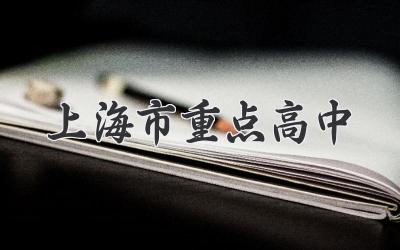 上海市重点高中